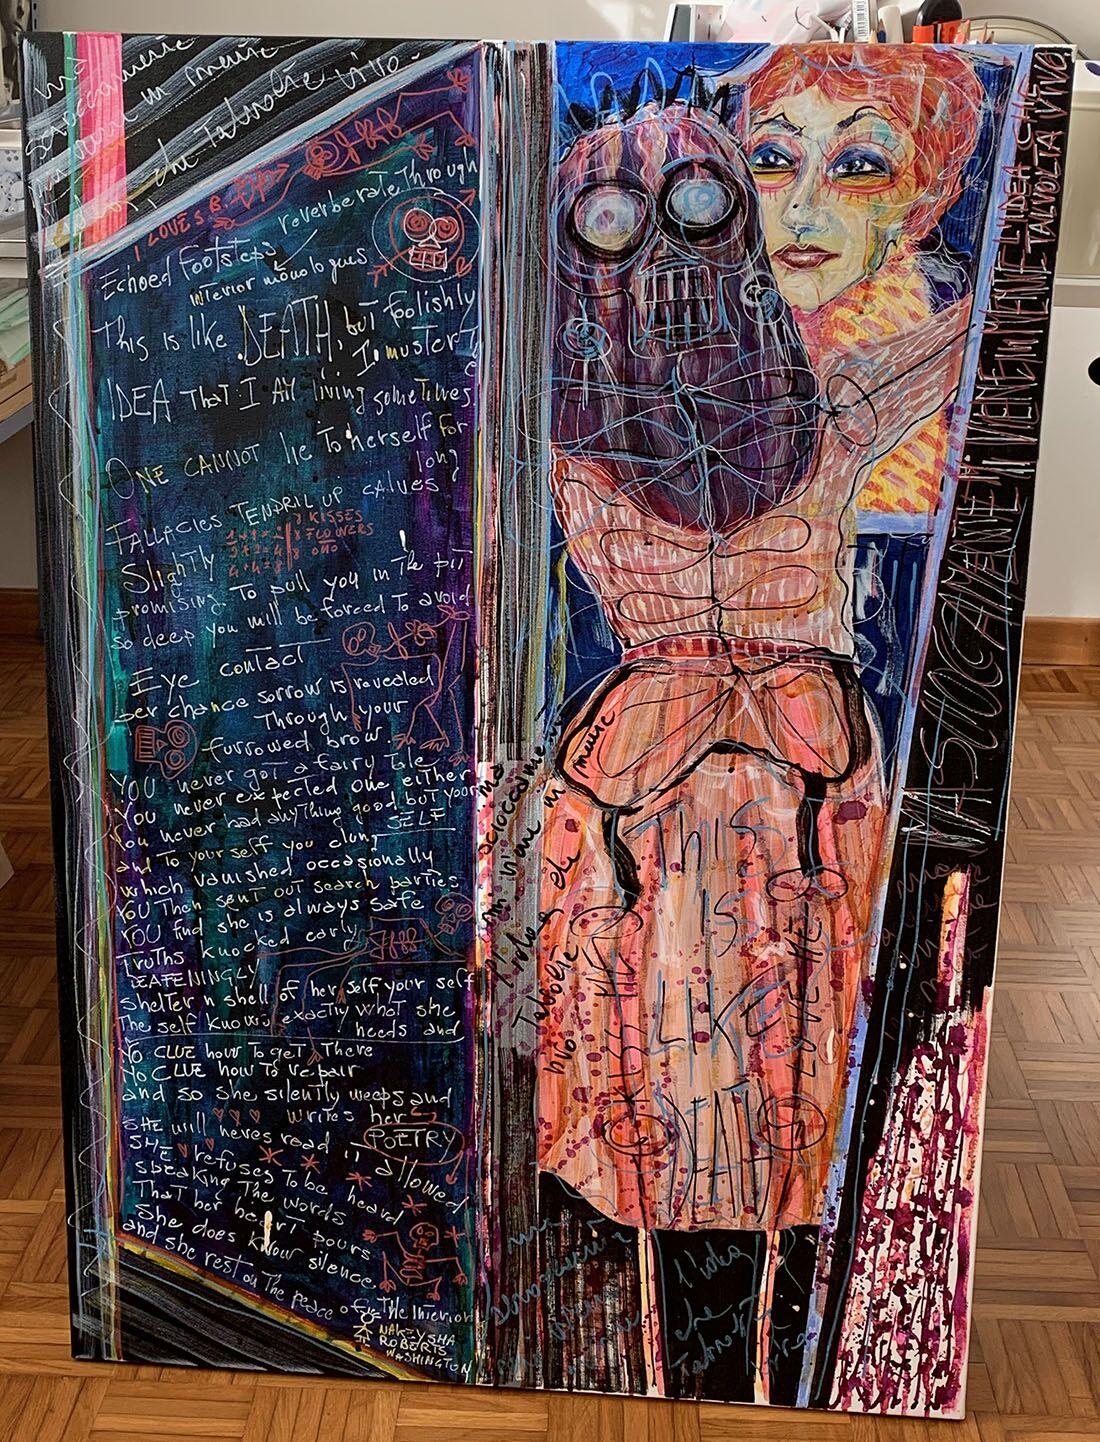 I LOVE S.B.
Echoed footsteps reverberate through
interior monologues
This is like DEATH, but foolishly
I muster
IDEA that I AM living sometimes
ONE CANNOT lie to herself for
long
FALLACIES TENDRIL UP CALVES
Slightly
KISSES
FLOWERS
promising. To pull you in the pit
so deep you will be forced to avoid
Eye contact
per chance sorrow is revealed
Through your
furrowed brow.
YOU never got a fairy tale
You never expected one either
You never had anything good but your
SELF
and to your self you clung
which vanished occasionally
YOU Then sent out search parties
YOU find she is always safe
Truths knocked early
DEAFENINGLY
shelter n shell of her self your self
The self knows exactly what she
needs and
NO CLUE how to get there
NO CLUE how to repair
and so she silently weeps and
writes her
POETRY
SHE will never read it allowed
SHE refuses to be heard
speaking the words
That her heart pours
She does know silence.
and she rest on the peace of the Interior
NAKEYSHA
ROBERTS
WASHINGTON
THIS
IS
LIKE
DEATH
KISS
LOVE ME
MA SCIOCCAMENTE MI VIENE IN MENTE L'IDEA CHE
TALVOLTA VIVO
ma
scioccamente
in
l'idea che
Talvolta
vivo